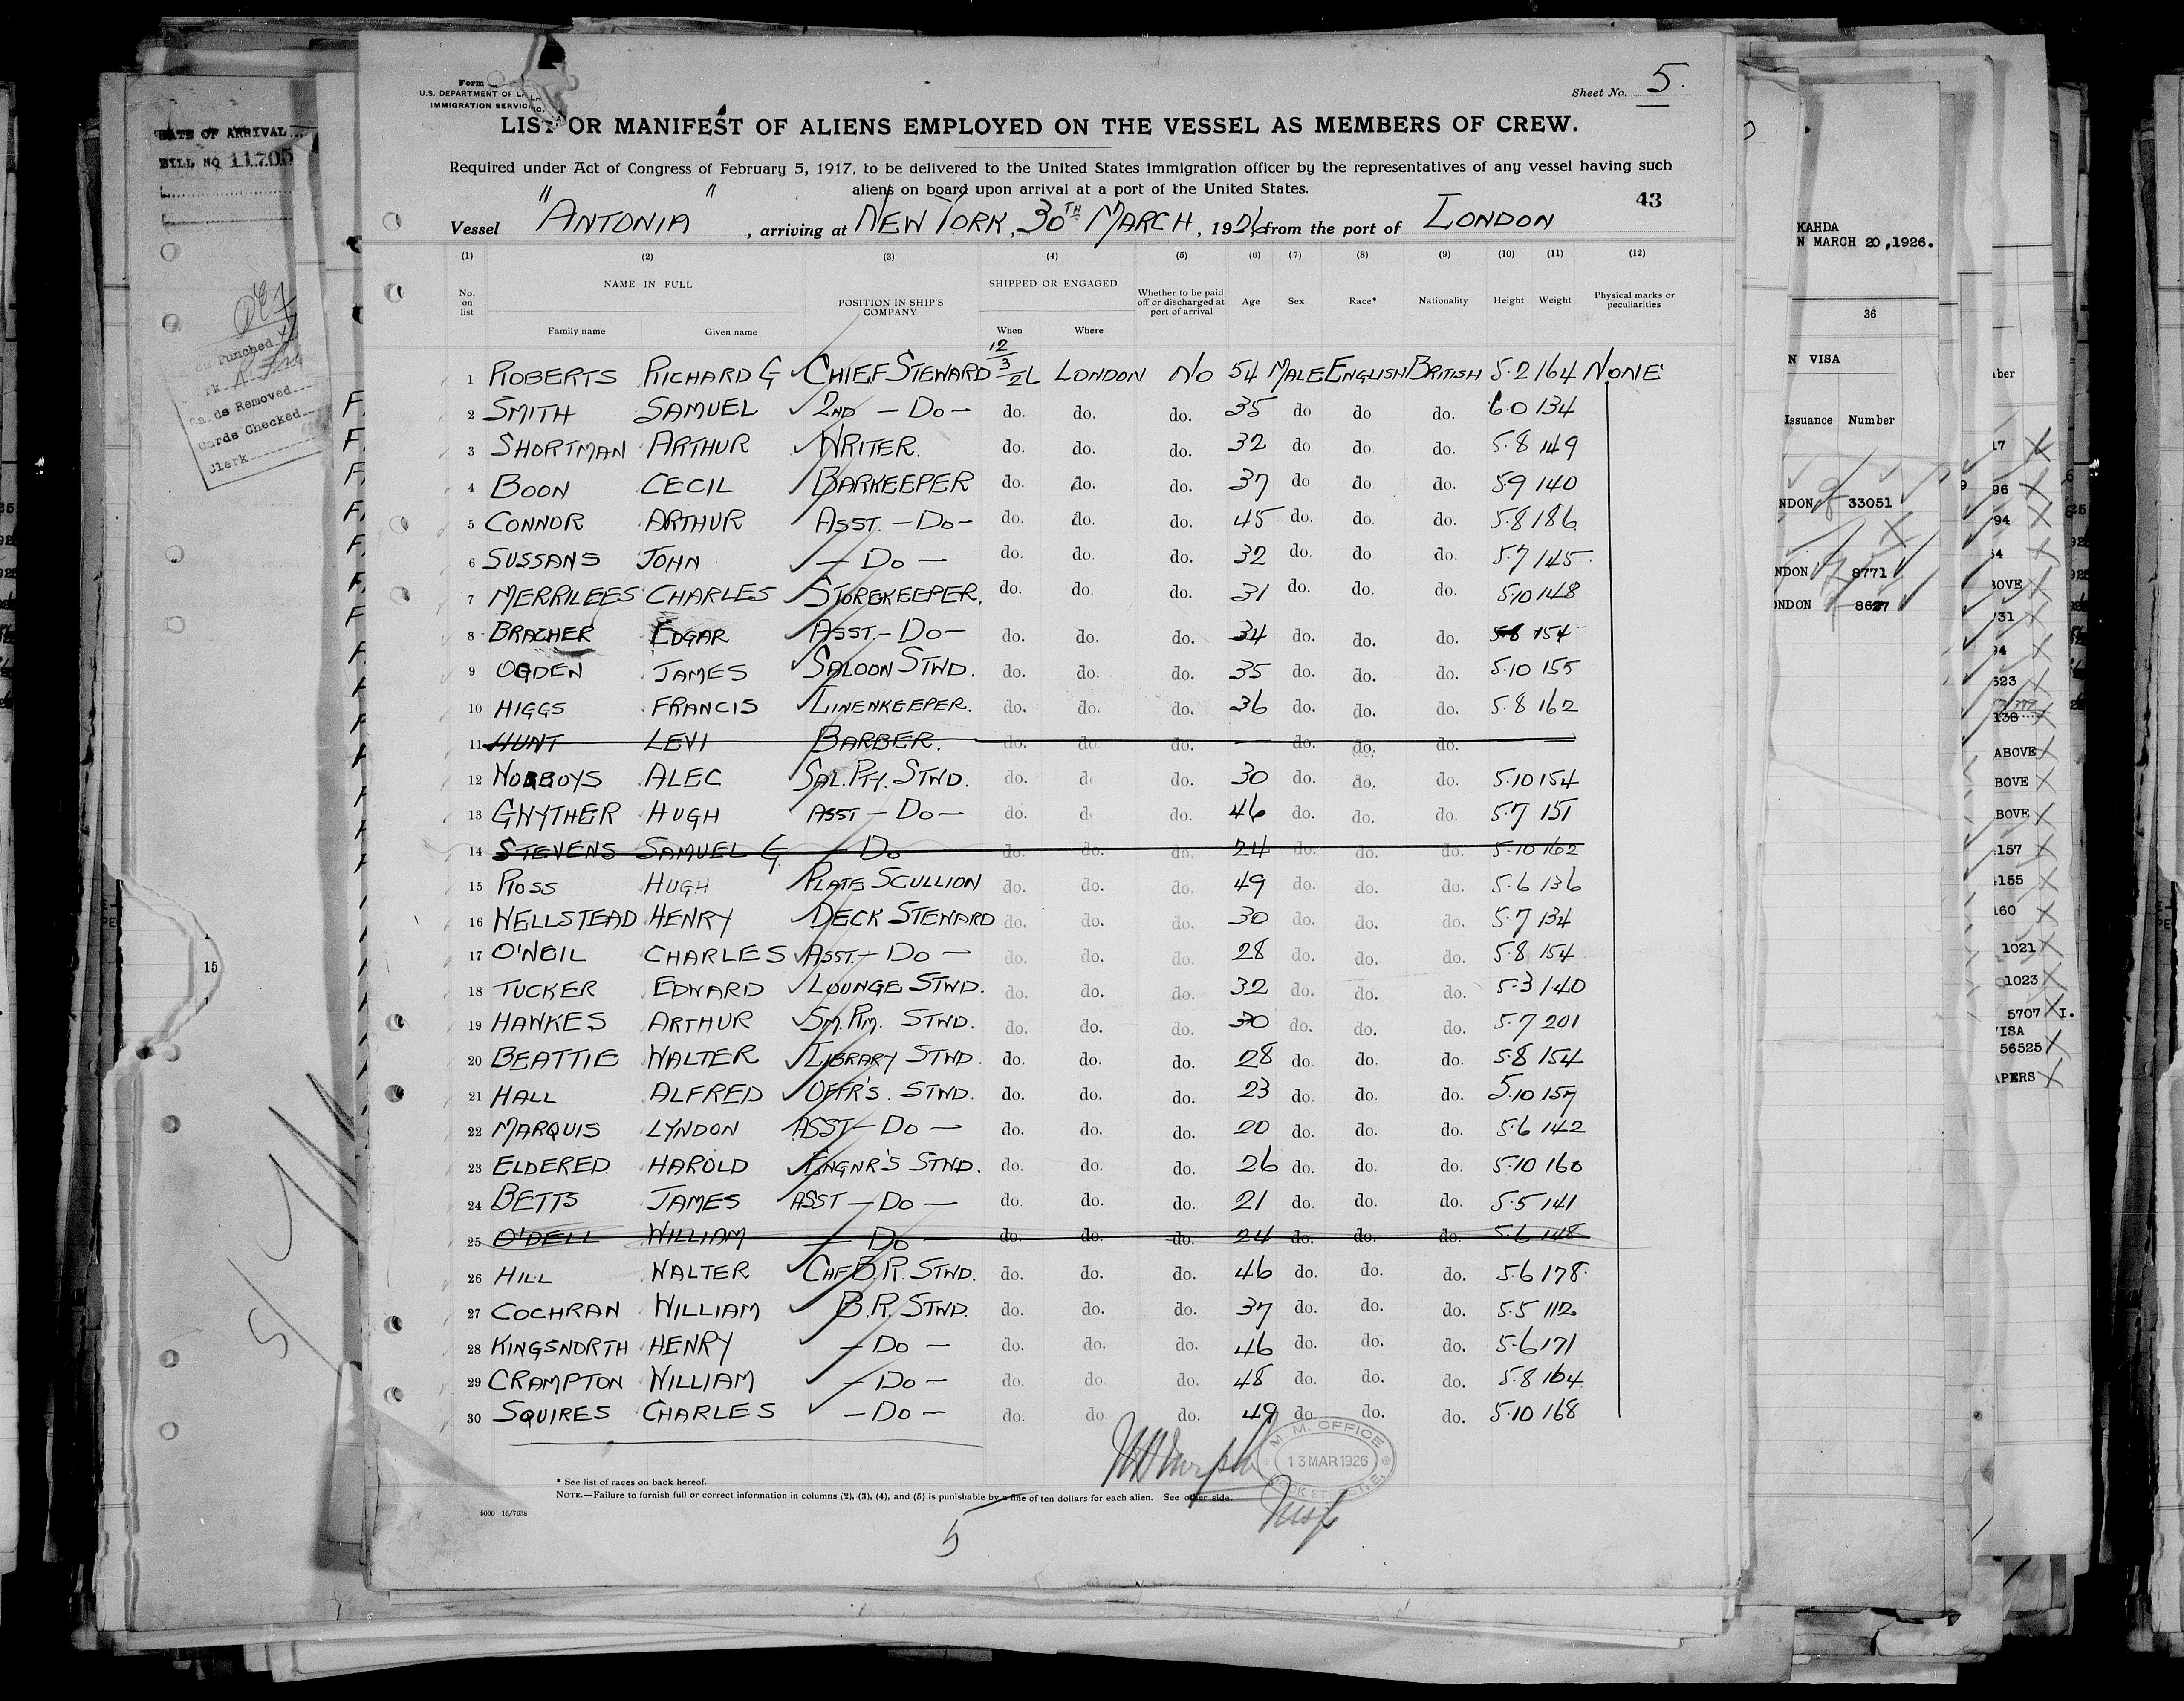 Form
U.S. DEPARTMENT OF LA
IMMIGRATION SERVICE
Sheet No. 5.
LIST OR MANIFEST OF ALIENS EMPLOYED ON THE VESSEL AS MEMBERS OF CREW.
Required under Act of Congress of February 5, 1917, to be delivered to the United States immigration officer by the representatives of any vessel having such
aliens on board upon arrival at a port of the United States.
43
Vessel "ANTONIA", arriving at NEW YORK, 30TH MARCH, 1926, from the port of LONDON
(1) (2) (3) (4) (5) (6) (7) (8) (9) (10) (11) (12)
No. on list NAME IN FULL Family name Given name POSITION IN SHIP'S COMPANY SHIPPED OR ENGAGED When Where Whether to be paid off or discharged at port of arrival Age Sex Race* Nationality Height Weight Physical marks or peculiarities
1 ROBERTS RICHARD G CHIEF STEWARD 12/3/26 LONDON NO 54 MALE ENGLISH BRITISH 5.2 164 NONE
2 SMITH SAMUEL 2ND - DO - do. do. do. 35 do do do. 6.0 134
3 SHORTMAN ARTHUR WRITER. do. do. do. 32 do do. do. 5.8 149
4 BOON CECIL BARKEEPER do. do. do. 37 do do. do. 5.9 140
5 CONNOR ARTHUR ASST. - DO - do. do. do. 45 do. do. do. 5.8 186
6 SUSSANS JOHN - DO - do. do. do. 32 do. do do. 5.7 145
7 MERRILEES CHARLES STOREKEEPER. do. do. do. 31 do. do. do. 5.10 148
8 BRACHER EDGAR ASST. - DO - do. do. do. 34 do. do. do. 5.8 154
9 OGDEN JAMES SALOON STWD. do. do. do. 35 do. do. do. 5.10 155
10 HIGGS FRANCIS LINENKEEPER. do. do. do. 36 do. do. do. 5.8 162
11 HUNT LEVI BARBER. do. do do. — do. do. do. —
12 NORBOYS ALEC SAL. PTY. STWD. do. d do. 30 do. do. do. 5.10 154
13 GWYTHER HUGH ASST - DO - do. d do. 46 do. do. do. 5.7 151
14 STEVENS SAMUEL G. - DO do. do. do. 24 do. do. do. 5.10 162
15 ROSS HUGH PLATE SCULLION do. do. do. 49 do. do. do. 5.6 136
16 WELLSTEAD HENRY DECK STEWARD do. do. do. 30 do. do. do. 5.7 134
17 O'NEIL CHARLES ASST. - DO - do. do. do. 28 do. do. do. 5.8 154
18 TUCKER EDWARD LOUNGE STWD. do. do. do. 32 do. do. do. 5.3 140
19 HAWKES ARTHUR SM. RM. STWD. do. do. do. 30 do. do. do. 5.7 201
20 BEATTIE WALTER LIBRARY STWD. do. do. do. 28 do. do. do. 5.8 154
21 HALL ALFRED OFFR'S. STWD. do. do. do. 23 do. do. do. 5.10 157
22 MARQUIS LYNDON ASST - DO - do. do. do. 20 do. do. do. 5.6 142
23 ELDERED HAROLD ENGNR'S STWD. do. do. do. 26 do. do. do. 5.10 160
24 BETTS JAMES ASST - DO - do. do. do. 21 do. do. do. 5.5 141
25 O'DELL WILLIAM - DO do. do. do. 24 do. do. do. 5.6 148
26 HILL WALTER CHF B.R. STWD. do. do. do. 46 do. do. do. 5.6 178
27 COCHRAN WILLIAM B.R. STWD. do. do. do. 37 do. do. do. 5.5 112
28 KINGSNORTH HENRY - DO - do. do. do. 46 do. do. do. 5.6 171
29 CRAMPTON WILLIAM - DO - do. do. do. 48 do. do. do. 5.8 164
30 SQUIRES CHARLES - DO - do. do. do. 49 do. do. do. 5.10 168
M. M. OFFICE
13 MAR 1926
* See list of races on back hereof.
NOTE.—Failure to furnish full or correct information in columns (2), (3), (4), and (5) is punishable by a fine of ten dollars for each alien. See other side.
5000 16/7638
5
DATE OF ARRIVAL
BILL NO 11705
Punched
Cards Removed
Cards Checked
Clerk
15
KAHDA
N MARCH 20, 1926.
36
N VISA
Issuance Number
NDON 33051
NDON 8771
ONDON 8627
ber
17
96
94
54
BOVE
731
94
523
138
ABOVE
BOVE
BOVE
157
155
160
1021
1023
5707 I.
VISA
56525
APERS